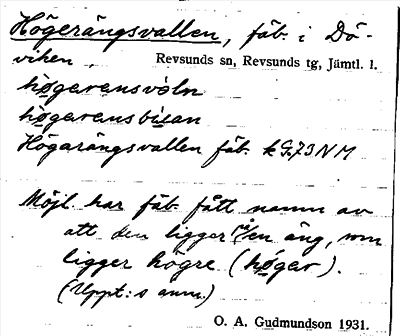 Högerängsvallen, fäb. i Dö-
viken. Revsunds sn, Revsunds tg, Jämtl. l.
høgaraŋsvàln
høgaraŋsbùan
Högarängsvallen fäb. k G.73 NM
Möjl. har fäb. fått namn av
att den ligger på en äng, som
ligger högre (høgar).
(Uppt:s anm.)
O. A. Gudmundson 1931.